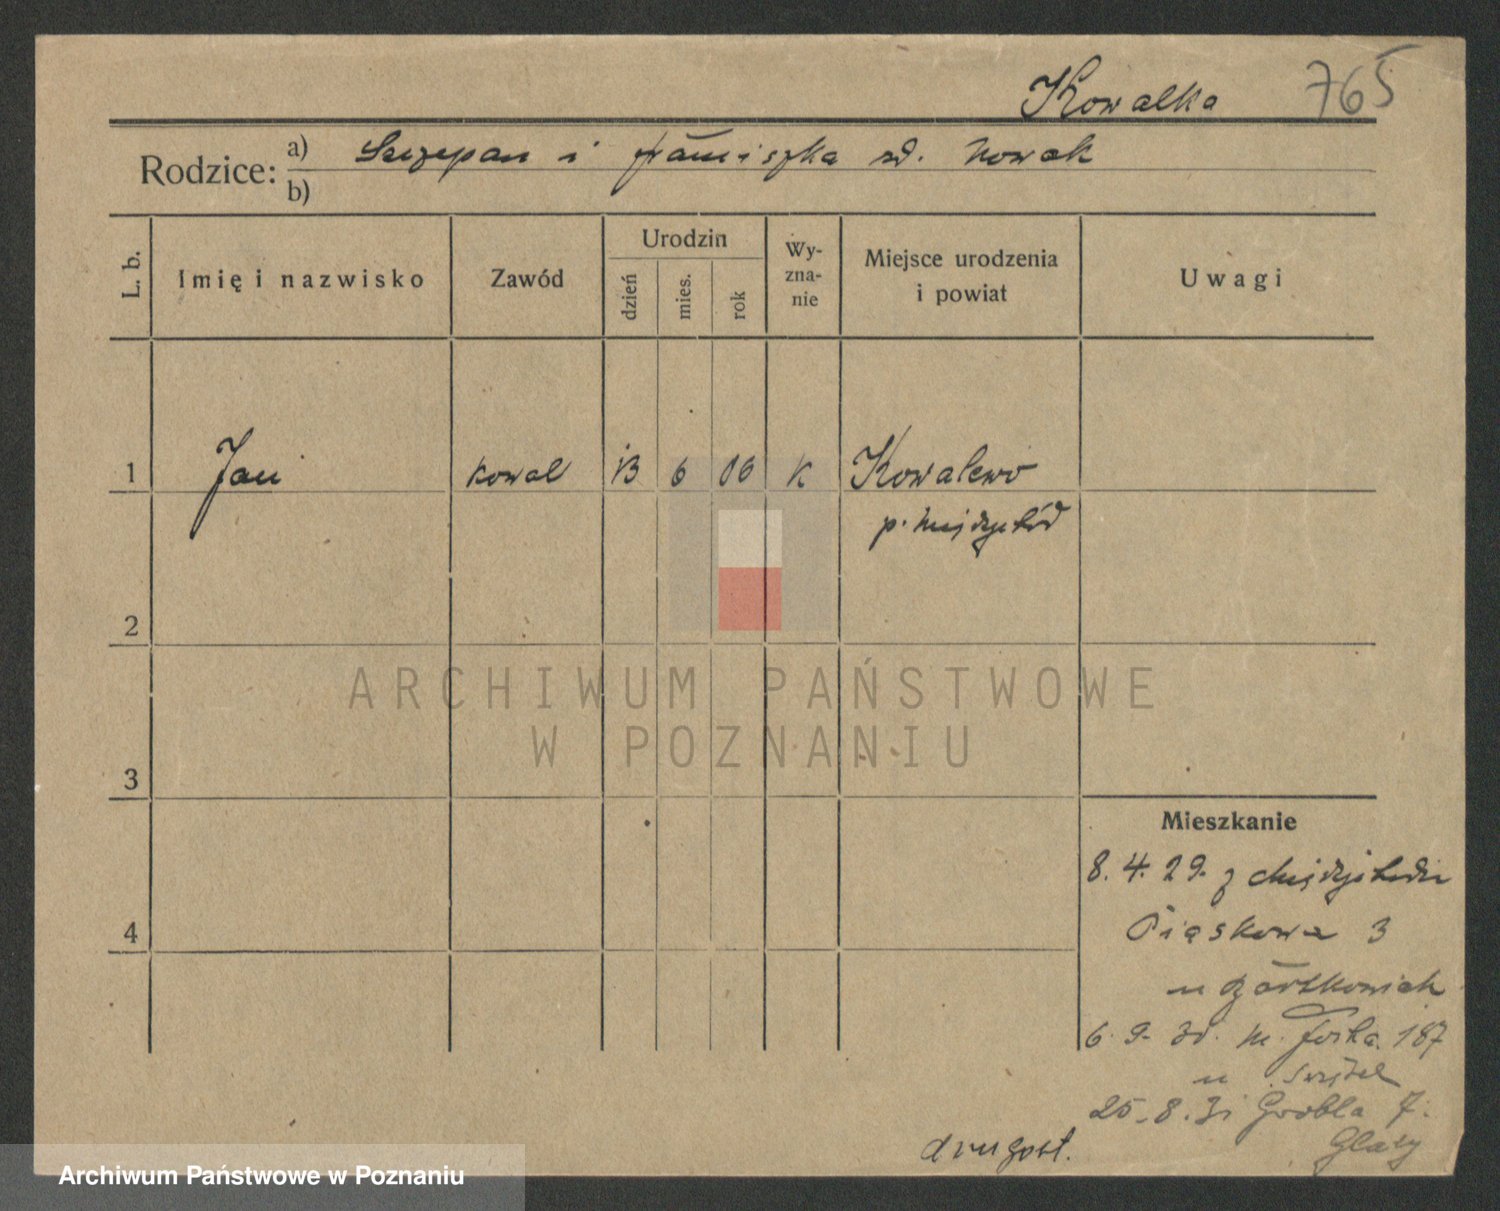 Kowalka 765
Rodzice: a) Szczepan i Franciszka zd. Nowak
b)
L. b. Imię i nazwisko Zawód Urodzin dzień mies. rok Wy-zna-nie Miejsce urodzenia i powiat Uwagi
1 Jan kowal 13 6 06 K Kowalewo
p. Międzychód
2
3
4
Mieszkanie
8. 4. 29. z Międzychodu
Piaskowa 3
u
6. 9. 30. M. Focha. 187
u
25. 8. 31 Grobla 7.
drugost.
ARCHIWUM PAŃSTWOWE
W POZNANIU
Archiwum Państwowe w Poznaniu